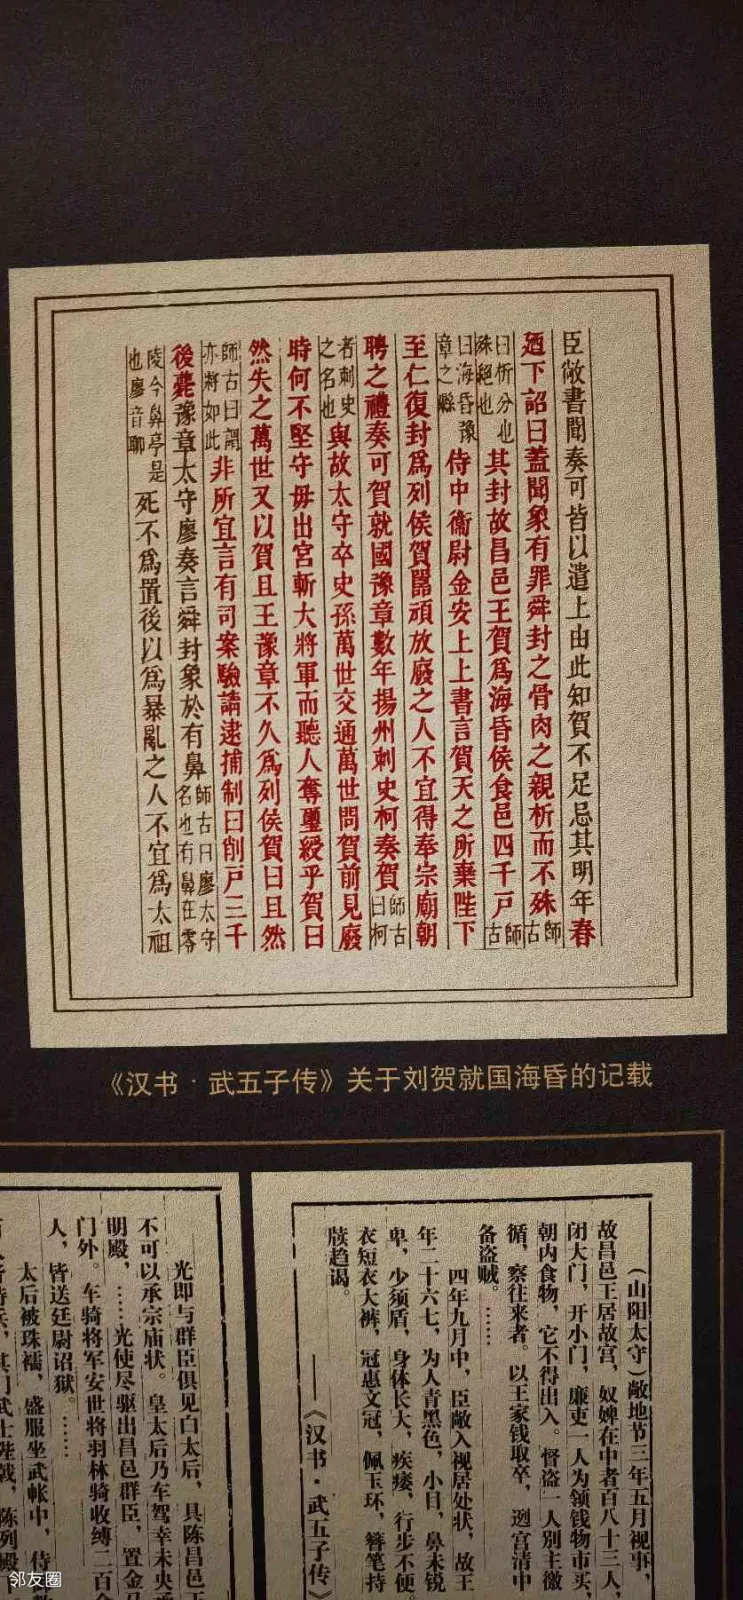 臣敞書聞奏可皆以遣上由此知賀不足忌其明年春
廼下詔曰蓋聞象有罪舜封之骨肉之親析而不殊師古
曰析分也殊絕也其封故昌邑王賀爲海昏侯食邑四千戶師古
曰海昏豫章之縣侍中衞尉金安上上書言賀天之所棄陛下
至仁復封爲列侯賀嚚頑放廢之人不宜得奉宗廟朝
聘之禮奏可賀就國豫章數年揚州刺史柯奏賀師古曰柯
者刺史之名也與故太守卒史孫萬世交通萬世問賀前見廢
時何不堅守毋出宮斬大將軍而聽人奪璽綬乎賀曰
然失之萬世又以賀且王豫章不久爲列侯賀曰且然
師古曰謂亦將如此非所宜言有司案驗請逮捕制曰削戶三千
後薨豫章太守廖奏言舜封象於有鼻師古曰廖太守名也有鼻在零
陵今鼻亭是也廖音聊死不爲置後以爲暴亂之人不宜爲太祖
《汉书·武五子传》关于刘贺就国海昏的记载
（山阳太守）敞地节三年五月视事，
故昌邑王居故宫，奴婢在中者百八十三人，
闭大门，开小门，廉吏一人为领钱物市买，
朝内食物，它不得出入。督盗一人别主徼
循，察往来者。以王家钱取卒，迾宫清中
备盗贼。……
四年九月中，臣敞入视居处状，故王
年二十六七，为人青黑色，小目，鼻末锐
卑，少须眉，身体长大，疾痿，行步不便。
衣短衣大裤，冠惠文冠，佩玉环，簪笔持
牍趋谒。
——《汉书·武五子传》
光即与群臣俱见白太后，具陈昌邑王
不可以承宗庙状。皇太后乃车驾幸未央承
明殿，……光使尽驱出昌邑群臣，置金马
门外。车骑将军安世将羽林骑收缚二百余
人，皆送廷尉诏狱。……
太后被珠襦，盛服坐武帐中，侍御
邻友圈